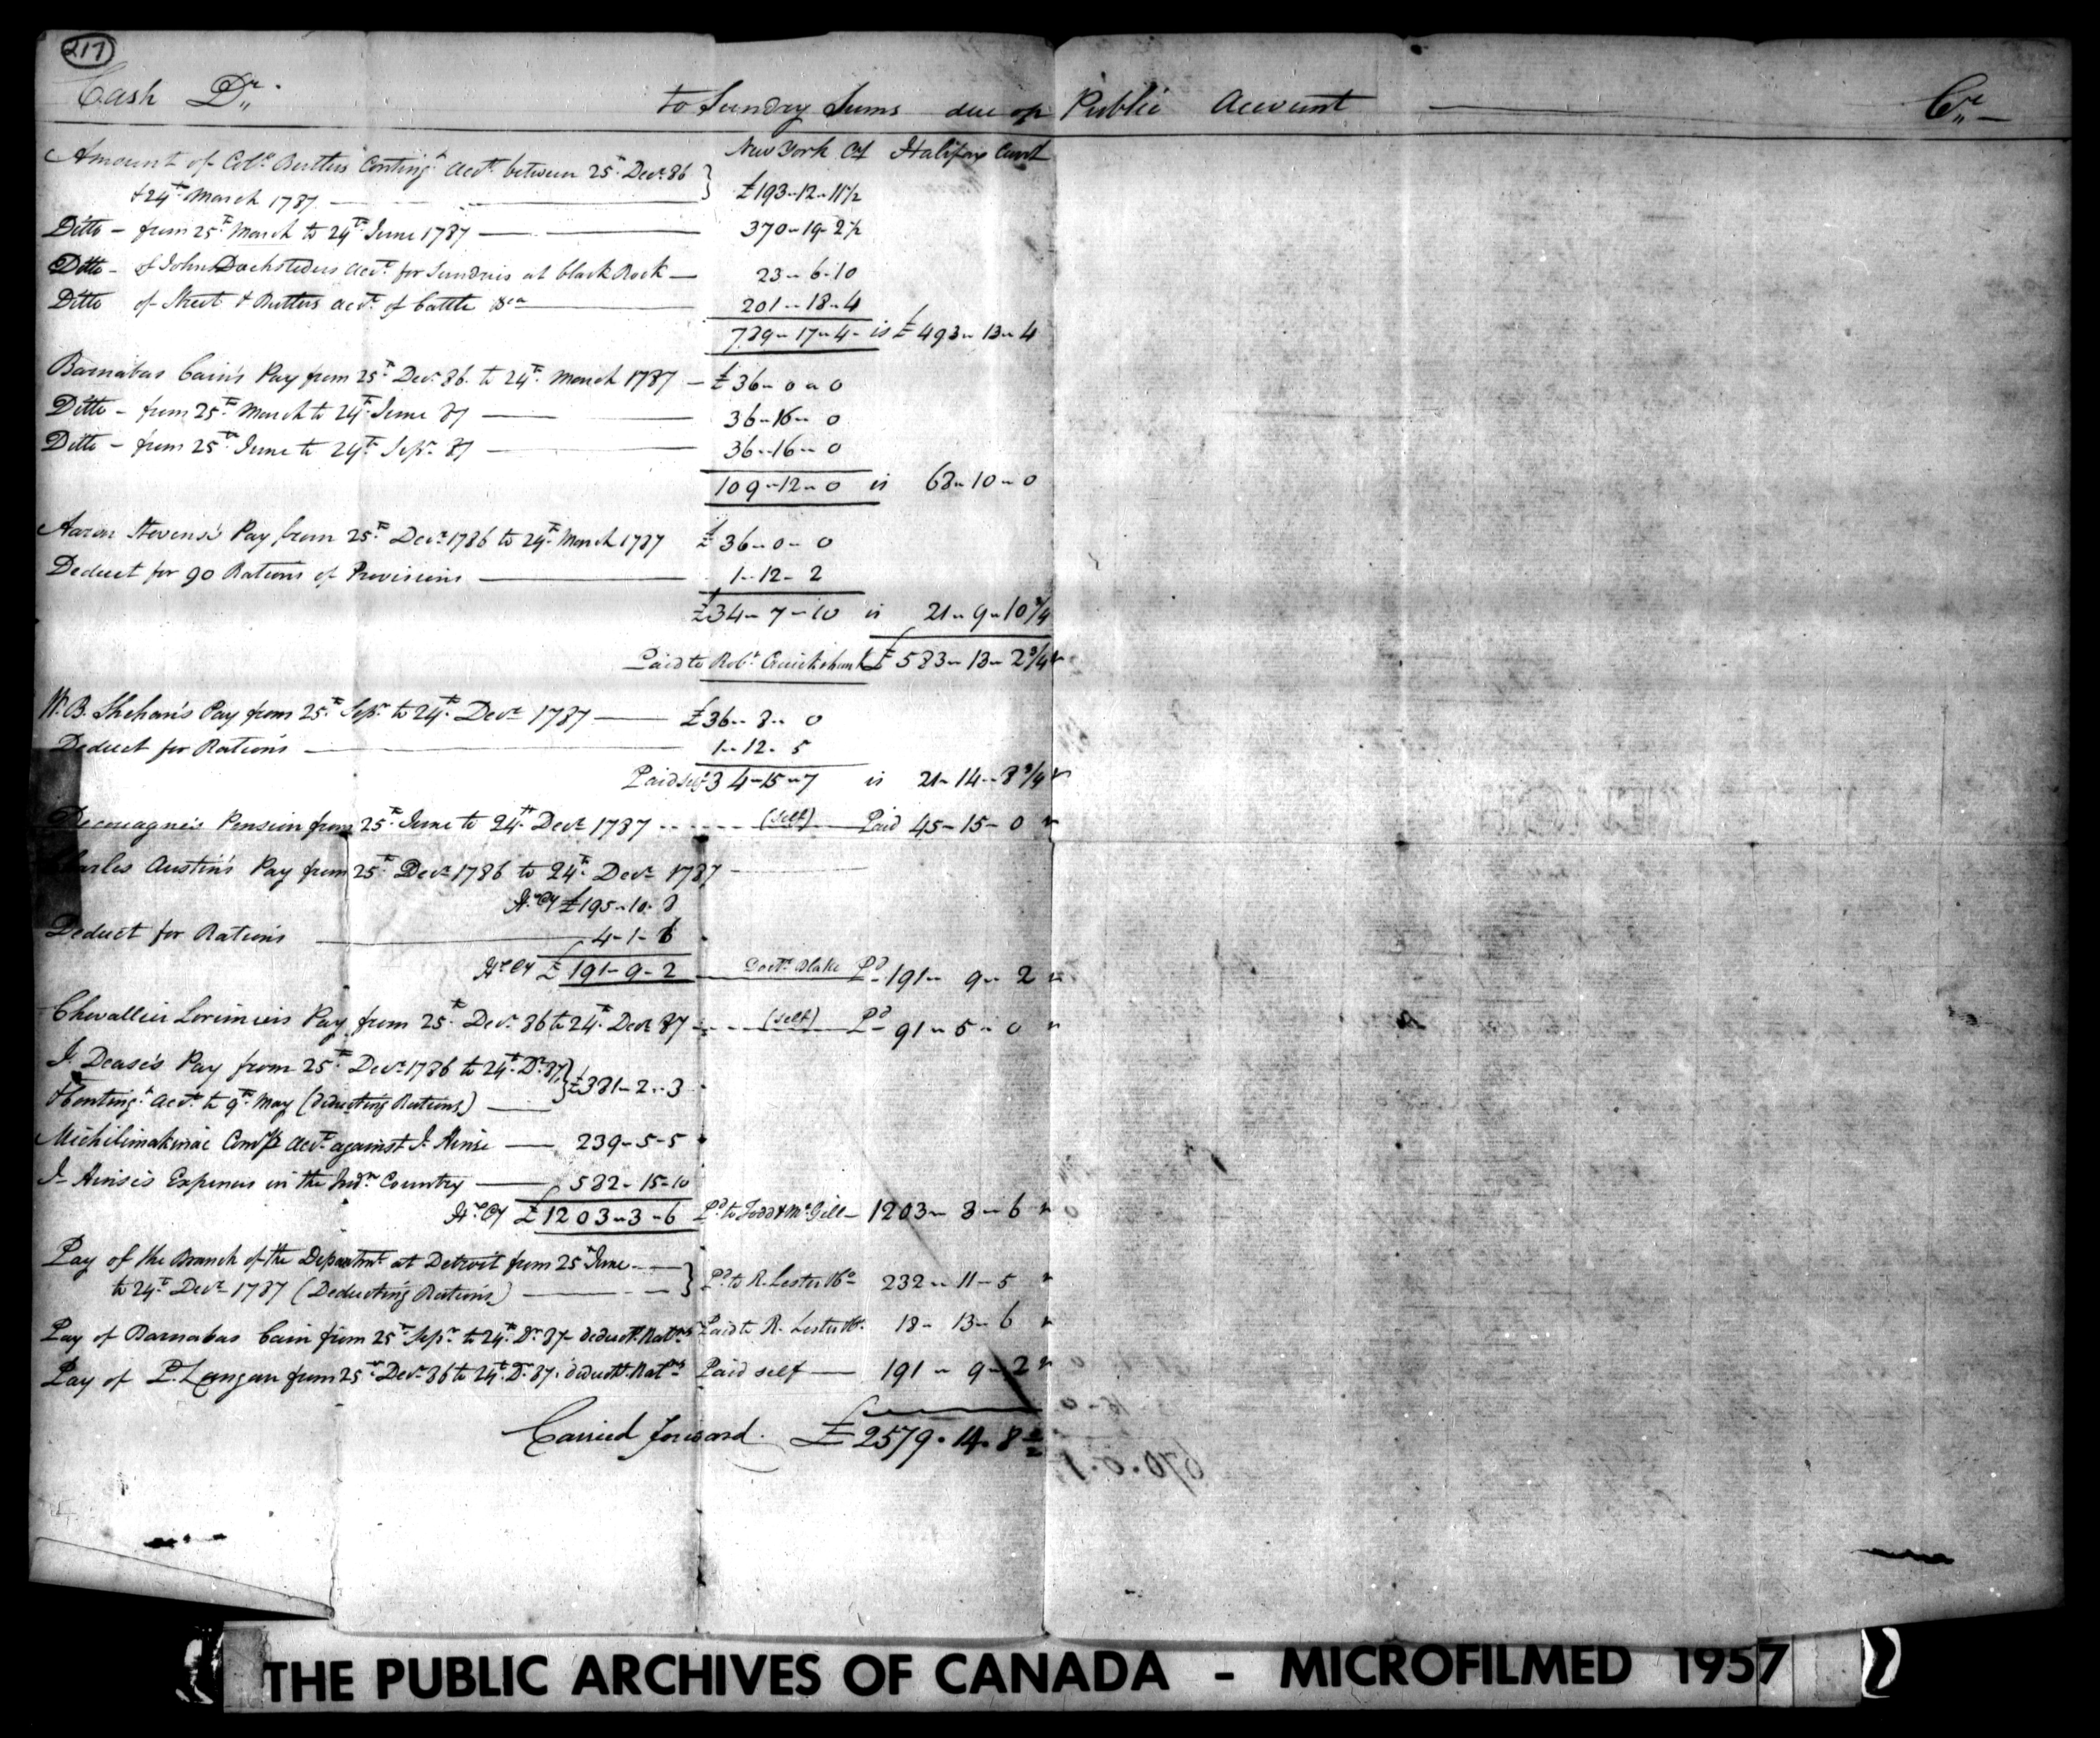 217
Cash Dr. to Sundry Sums due on Public Account Cr.
New York Cy Halifax Curr.t
Amount of Col.o Butlers Conting.t Acc.t between 25.th Dec.r 86
& 24.th March 1787 £193-12-11½
Ditto - from 25.th March to 24.th June 1787 370-19-2½
Ditto - of John Dochsteders acc.t for Sundries at black Rock 23-6-10
Ditto of Street & Butlers acc.t of Cattle &ca 201-18-4
789-17-4 is £493-13-4
Barnabas Cain's Pay from 25.th Dec.r 86. to 24.th March 1787 £36-0-0
Ditto - from 25.th March to 24.th June 87 36-16-0
Ditto - from 25.th June to 24.th Sep.r 87 36-16-0
109-12-0 is 68-10-0
Aaron Stevens's Pay from 25.th Dec.r 1786 to 24.th March 1787 £36-0-0
Deduct for 90 Rations of Provisions 1-12-2
£34-7-10 is 21-9-10¾
Paid to Rob.t Cruickshank £583-13-2¾
W.B. Shehan's Pay from 25.th Sep.r to 24.th Dec.r 1787 £36-8-0
Deduct for Rations 1-12-5
Paid self 34-15-7 is 21-14-8¾
Decouagne's Pension from 25.th June to 24.th Dec.r 1787 (self) Paid 45-15-0
Charles Austin's Pay from 25.th Dec.r 1786 to 24.th Dec.r 1787
H.x Cy £195-10-8
Deduct for Rations 4-1-6
H.x Cy £191-9-2 Doct.r Blake P.d 191-9-2
Chevallier Lorimier's Pay from 25.th Dec.r 86 to 24.th Dec.r 87 (self) P.d 91-5-0
J. Dease's Pay from 25.th Dec.r 1786 to 24.th D.r 87
& Conting.t Acc.t to 9.th May (deducting Rations) £381-2-3
Michilimakinac Comp.s acc.t against J. Ainse 239-5-5
J. Ainse's Expences in the Ind.n Country 582-15-10
H.x Cy £1203-3-6 P.d to Todd & McGill 1203-3-6
Pay of the Branch of the Department at Detroit from 25.th June
to 24.th Dec.r 1787 (Deducting Rations) P.d to R. Lester &Co 232-11-5
Pay of Barnabas Cain from 25.th Sep.r to 24.th D.r 87 deduct.g Rat.ns Paid to R. Lester &Co. 18-13-6
Pay of P. Langan from 25.th Dec.r 86 to 24.th D.r 87. deduct.g Rat.ns Paid self 191-9-2
Carried forward. £2579.14.8½
THE PUBLIC ARCHIVES OF CANADA - MICROFILMED 1957